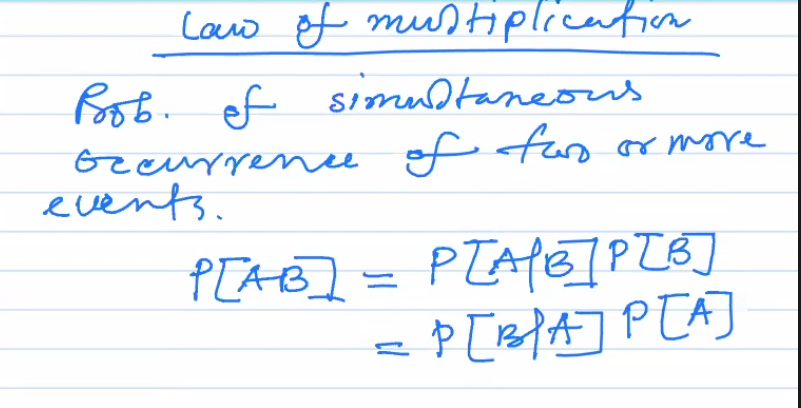 Law of multiplication
Prob. of simultaneous
occurrence of two or more
events.
P[AB] = P[A|B] P[B]
= P[B|A] P[A]